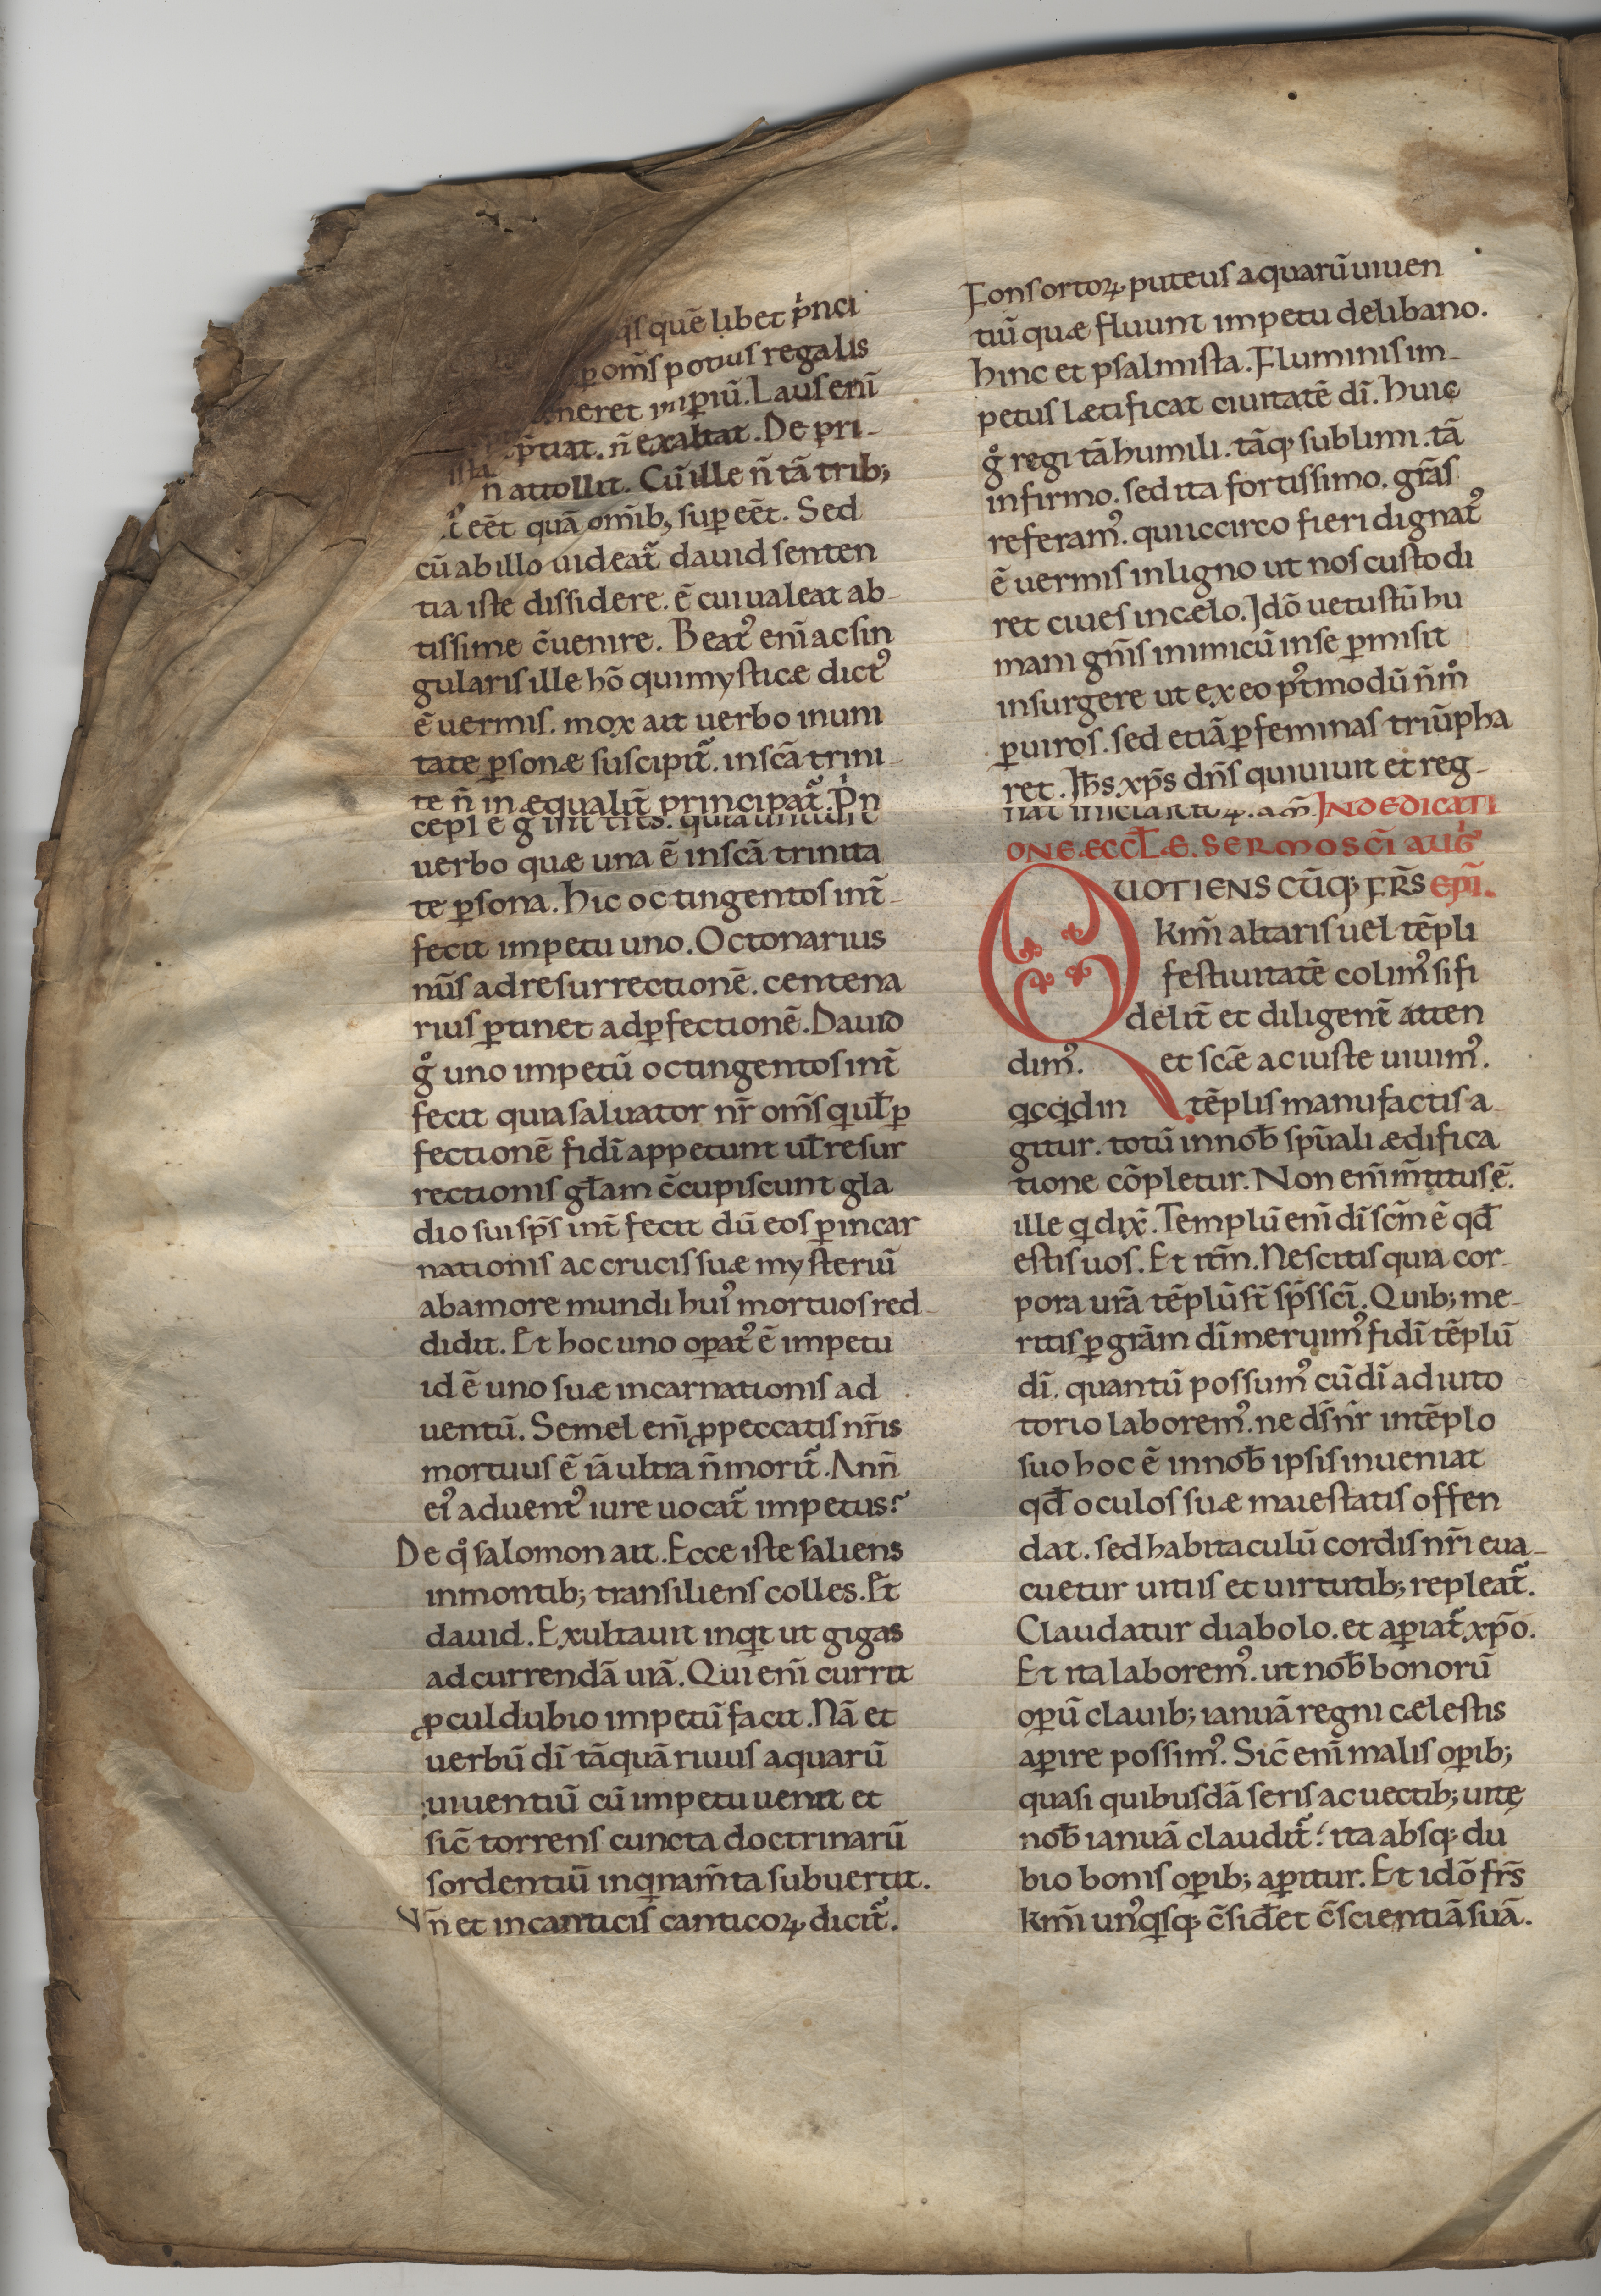 q̄s quē libet p̍nci
p̱ om̄s potius regalis
neret imp̱iū. Laus enī
p̄tiat. n̄ exaltat. De pri-
n̄ attollit. Cū ille n̄ tā trib;
eēt quā om̄ib; sup̱eēt. Sed
cū ab illo uideat̄ dauid senten
tia iste dissidere. ē cui ualeat ab-
tissime c̄uenire. Beat᾿ enī ac sin
gularis ille hō qui mysticæ dict᾿
ē uermis. mox aīt uerbo in uni
tate p̱sonæ suscipit̄. in scā trini-
te n̄ inæqualit̄ principat̄. P̍n
uerbo quæ una ē in scā trinita
te p̱sona. hic octingentos int̄-
fecit impetu uno. Octonarius
nūs ad resurrectionē. centena
rius p̱tinet ad p̱fectionē. Dauid
g̊ uno impetū octingentos int̄
fecit quia saluator nr̄ om̄s qui ul̄ p̱
fectionē fidī appetunt ul̄ resur
rectionis gl̄am c̄cupiscunt gla
dio sui sp̄s int̄fecit dū eos p̱ incar
nationis ac crucis suæ mysteriū
ab amore mundi hui᾿ mortuos red-
didit. Et hoc uno op̱at᾿ ē impetu
id ē uno suæ incarnationis ad
uentū. Semel enī p̱ peccatis nr̄is
mortuus ē iā ultra n̄ morit̄. Ann̄
ei᾿ aduent᾿ iure uocat̄ impetus?
De q̊ salomon ait. Ecce iste saliens
in montib; transiliens colles. Et
dauid. Exultauit inq̄t ut gigas
ad currendā uiā. Qui enī currit
p̱culdubio impetū facit. Nā et
uerbū dī tāquā riuus aquarū
uiuentiū cū impetu uenit et
sic̄ torrens cuncta doctrinarū
sordentiū inq̇nam̄ta subuertit.
Vn̄ et in canticis canticoꝝ dicit̄.
Fons ortoꝝ puteus aquarū uiuen
tiū quæ fluunt impetu de libano.
hinc et psalmista. Fluminis im-
petus lætificat ciuitatē dī. huic
g̊ regi tā humili. tāq; sublimi. tā
infirmo. sed ita fortissimo. gr̄as
referam᾿. qui iccirco fieri dignat᾿
ē uermis in ligno ut nos custodi
ret ciues in cælo. Idō uetustū hu
mani gn̄is inimicū in se p̱misit
insurgere ut ex eo p᾿tmodū n̄ m̊
p̱ uiros. sed etiā p̱ feminas triūpha
ret. Ih̄s xp̄s dn̄s qui uiuit et reg-
nat in sc̄la sc̄loꝝ. am̄. IN DEDICATI
ONE ÆCCL̄Æ. SERMO SC̄I AUG᾿
QUOTIENSCŪQ; FR̄S EPĪ.
km̄i altaris uel tēpli
festiuitatē colim᾿ si fi
delit̄ et diligent̄ atten
dim᾿. et scē ac iuste uiuim᾿.
qcqd in tēplis manufactis a-
gitur. totū in nob̄ spūali ædifica
tione cōpletur. Non enī m̄titus ē.
ille q dix̄. Templū enī dī scm̄ ē qd̄
estis uos. Et itm̄. Nescitis quia cor-
pora urā tēplū st̄ sp̄s scī. Quib; me-
ritis p̱ grām dī meruim᾿ fidī tēplū
dī. quantū possum᾿ cū dī adiuto
torio laborem᾿. ne ds̄ nr̄ in tēplo
suo hoc ē in nob̄ ipsis inueniat
qd̄ oculos suæ maiestatis offen
dat. sed habitaculū cordis nr̄i eua-
cuetur uitiis et uirtutib; repleat̄.
Claudatur diabolo. et ap̱iat̄ xp̄o.
Et ita laborem᾿. ut nob̄ bonorū
op̱ū clauib; ianuā regni cælestis
ap̱ire possim᾿. Sic̄ enī malis op̱ib;
quasi quibusdā seris ac uectib; uitę
nob̄ ianuā claudit̄? ita absq; du
bio bonis op̱ib; ap̱itur. Et idō fr̄s
km̄i un᾿q̇sq; c̄sid̄et c̄scientiā suā.